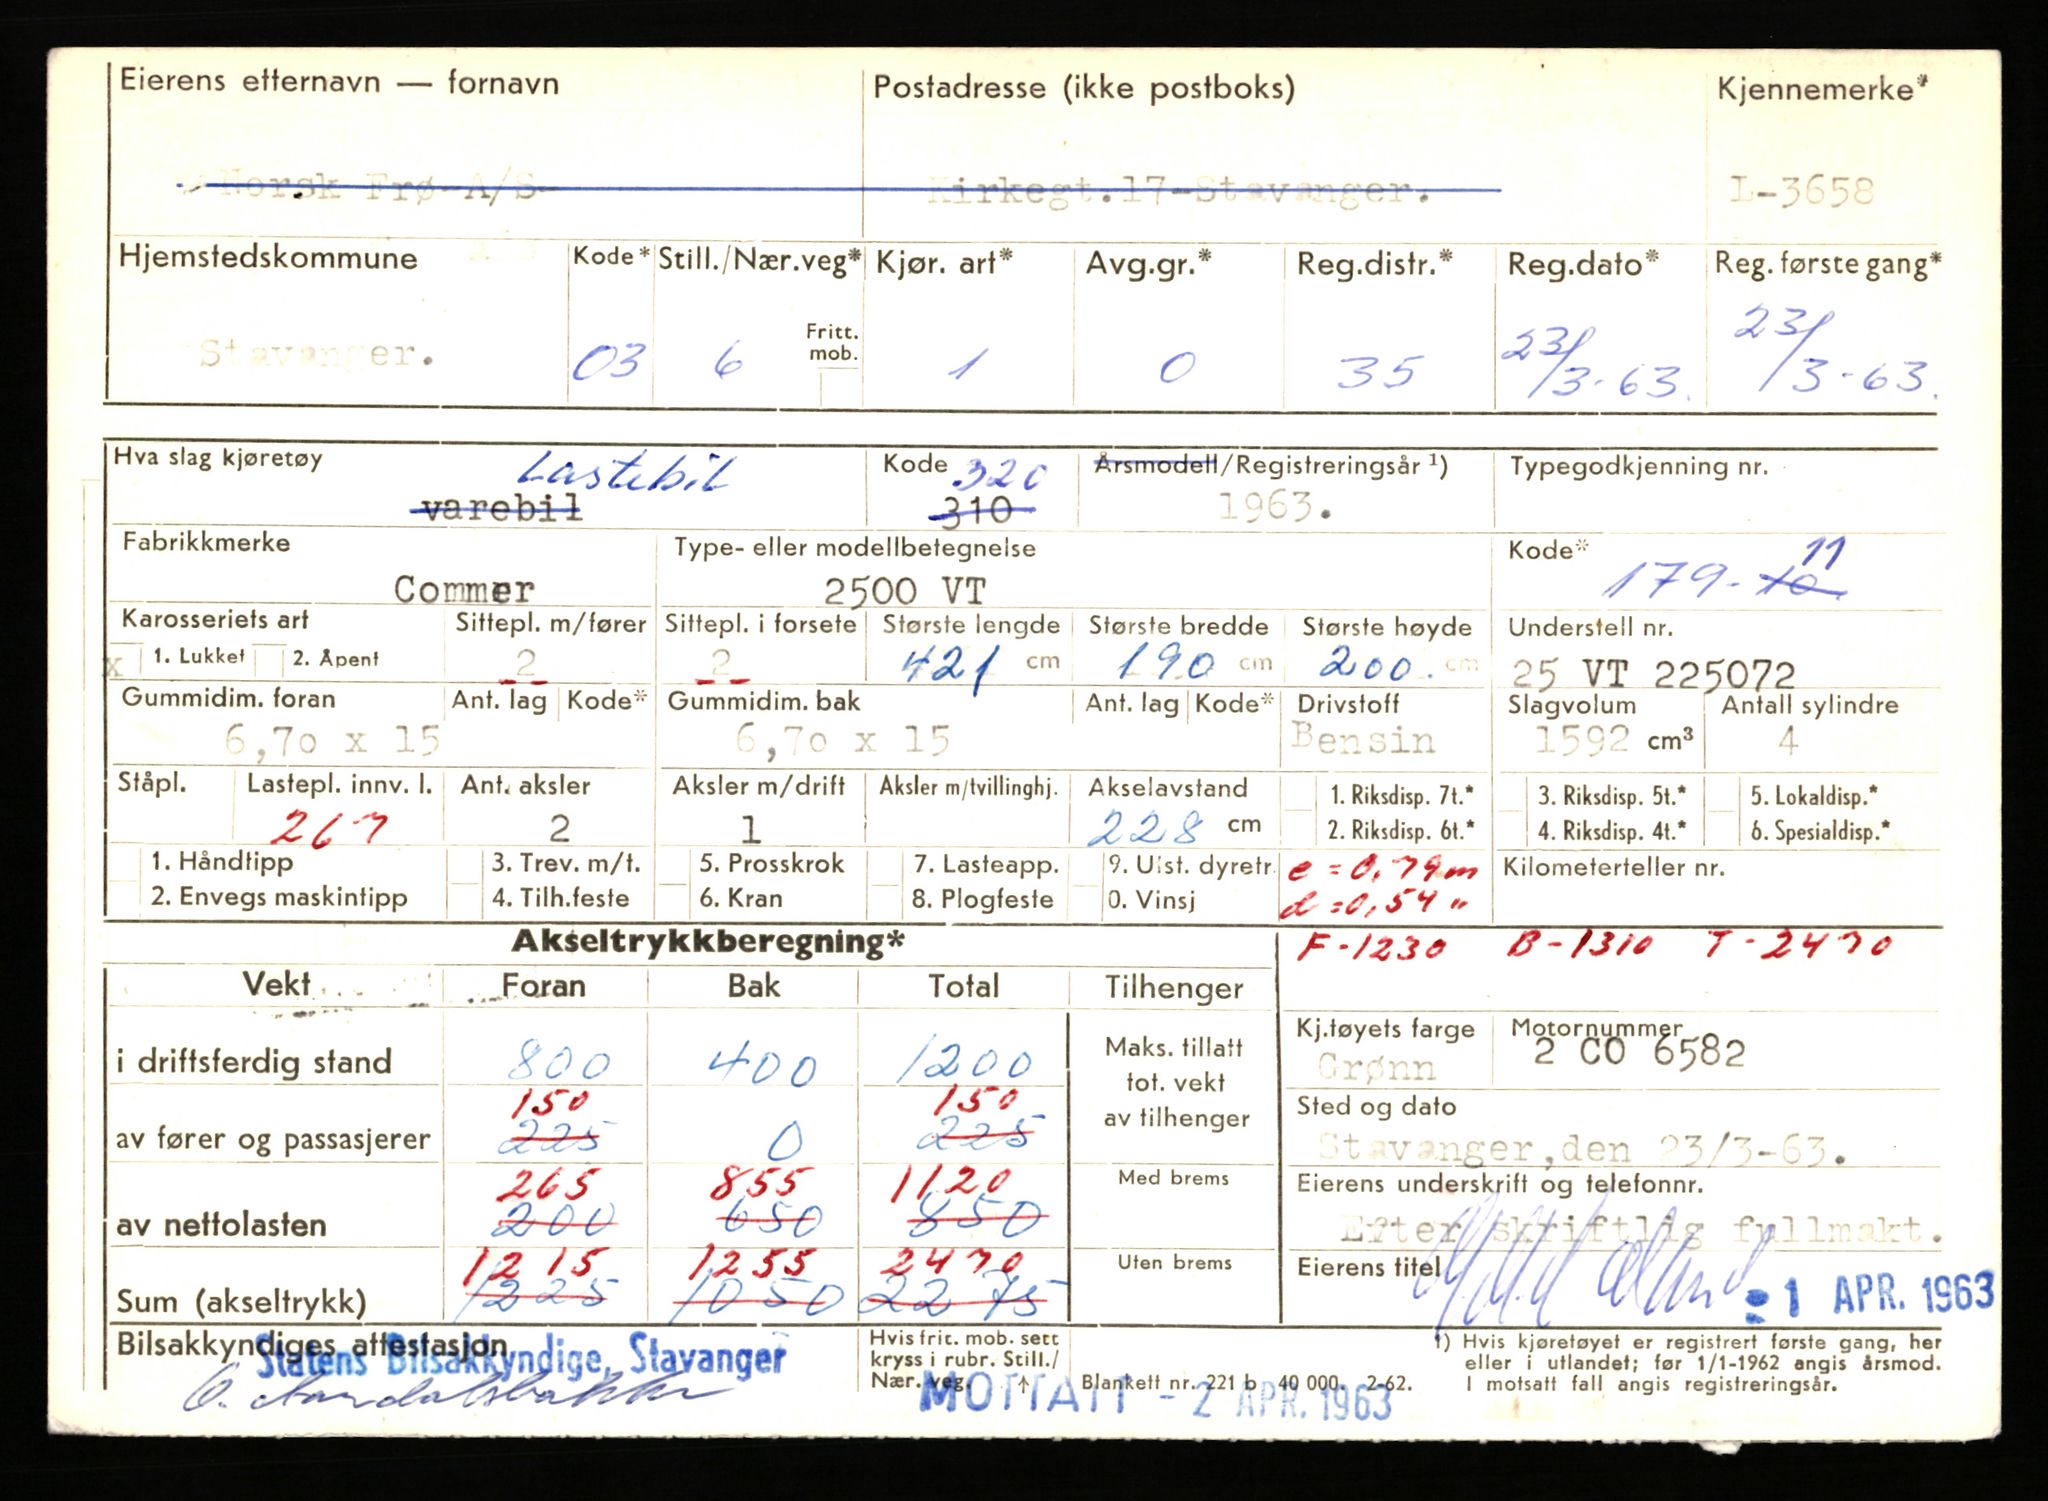 Eierens etternavn — fornavn
Postadresse (ikke postboks)
Kjennemerke*
Norsk Frø A/S
Kirkegt.17-Stavanger.
L-3658
Hjemstedskommune
Kode*
Still./Nær.veg*
Kjør. art*
Avg.gr.*
Reg.distr.*
Reg.dato*
Reg. første gang*
Stavanger.
03
6
Fritt. mob.
1
0
35
23/3-63.
23/3-63.
Hva slag kjøretøy
Lastebil
varebil
Kode 320
310
Årsmodell/Registreringsår ¹)
1963.
Typegodkjenning nr.
Fabrikkmerke
Commer
Type- eller modellbetegnelse
2500 VT
Kode*
179-10 11
Karosseriets art
x 1. Lukket 2. Åpent
Sittepl. m/fører
2
Sittepl. i forsete
2
Største lengde
421 cm
Største bredde
190 cm
Største høyde
200. cm
Understell nr.
25 VT 225072
Gummidim. foran
6,70 x 15
Ant. lag
Kode*
Gummidim. bak
6,70 x 15
Ant. lag
Kode*
Drivstoff
Bensin
Slagvolum
1592 cm³
Antall sylindre
4
Ståpl.
Lastepl. innv. l.
267
Ant. aksler
2
Aksler m/drift
1
Aksler m/tvillinghj.
Akselavstand
228 cm
1. Riksdisp. 7t.*
2. Riksdisp. 6t.*
3. Riksdisp. 5t.*
4. Riksdisp. 4t.*
5. Lokaldisp.*
6. Spesialdisp.*
1. Håndtipp
2. Envegs maskintipp
3. Trev. m/t.
4. Tilh.feste
5. Prosskrok
6. Kran
7. Lasteapp.
8. Plogfeste
9. Utst. dyretr.
0. Vinsj
e = 0,79 m
d = 0,54 "
Kilometerteller nr.
Akseltrykkberegning*
F-1230 B-1310 T-2470
Vekt
Foran
Bak
Total
Tilhenger
i driftsferdig stand
800
400
1200
Maks. tillatt
tot. vekt
av tilhenger
Kj.tøyets farge
Grønn
Motornummer
2 CO 6582
150
150
av fører og passasjerer
225
0
225
Sted og dato
Stavanger,den 23/3-63.
265
855
1120
Med brems
av nettolasten
200
650
850
Eierens underskrift og telefonnr.
Efter skriftlig fullmakt.
1215
1255
2470
Uten brems
Sum (akseltrykk)
1225
1050
2275
Eierens titel
- 1 APR. 1963
Bilsakkyndiges attestasjon
Statens Bilsakkyndige, Stavanger
Hvis frit. mob. sett
kryss i rubr. Still./
Nær. veg. ↑
Blankett nr. 221 b 40 000. 2-62.
MOTTATT - 2 APR. 1963
¹) Hvis kjøretøyet er registrert første gang, her
eller i utlandet; før 1/1-1962 angis årsmod.
I motsatt fall angis registreringsår.